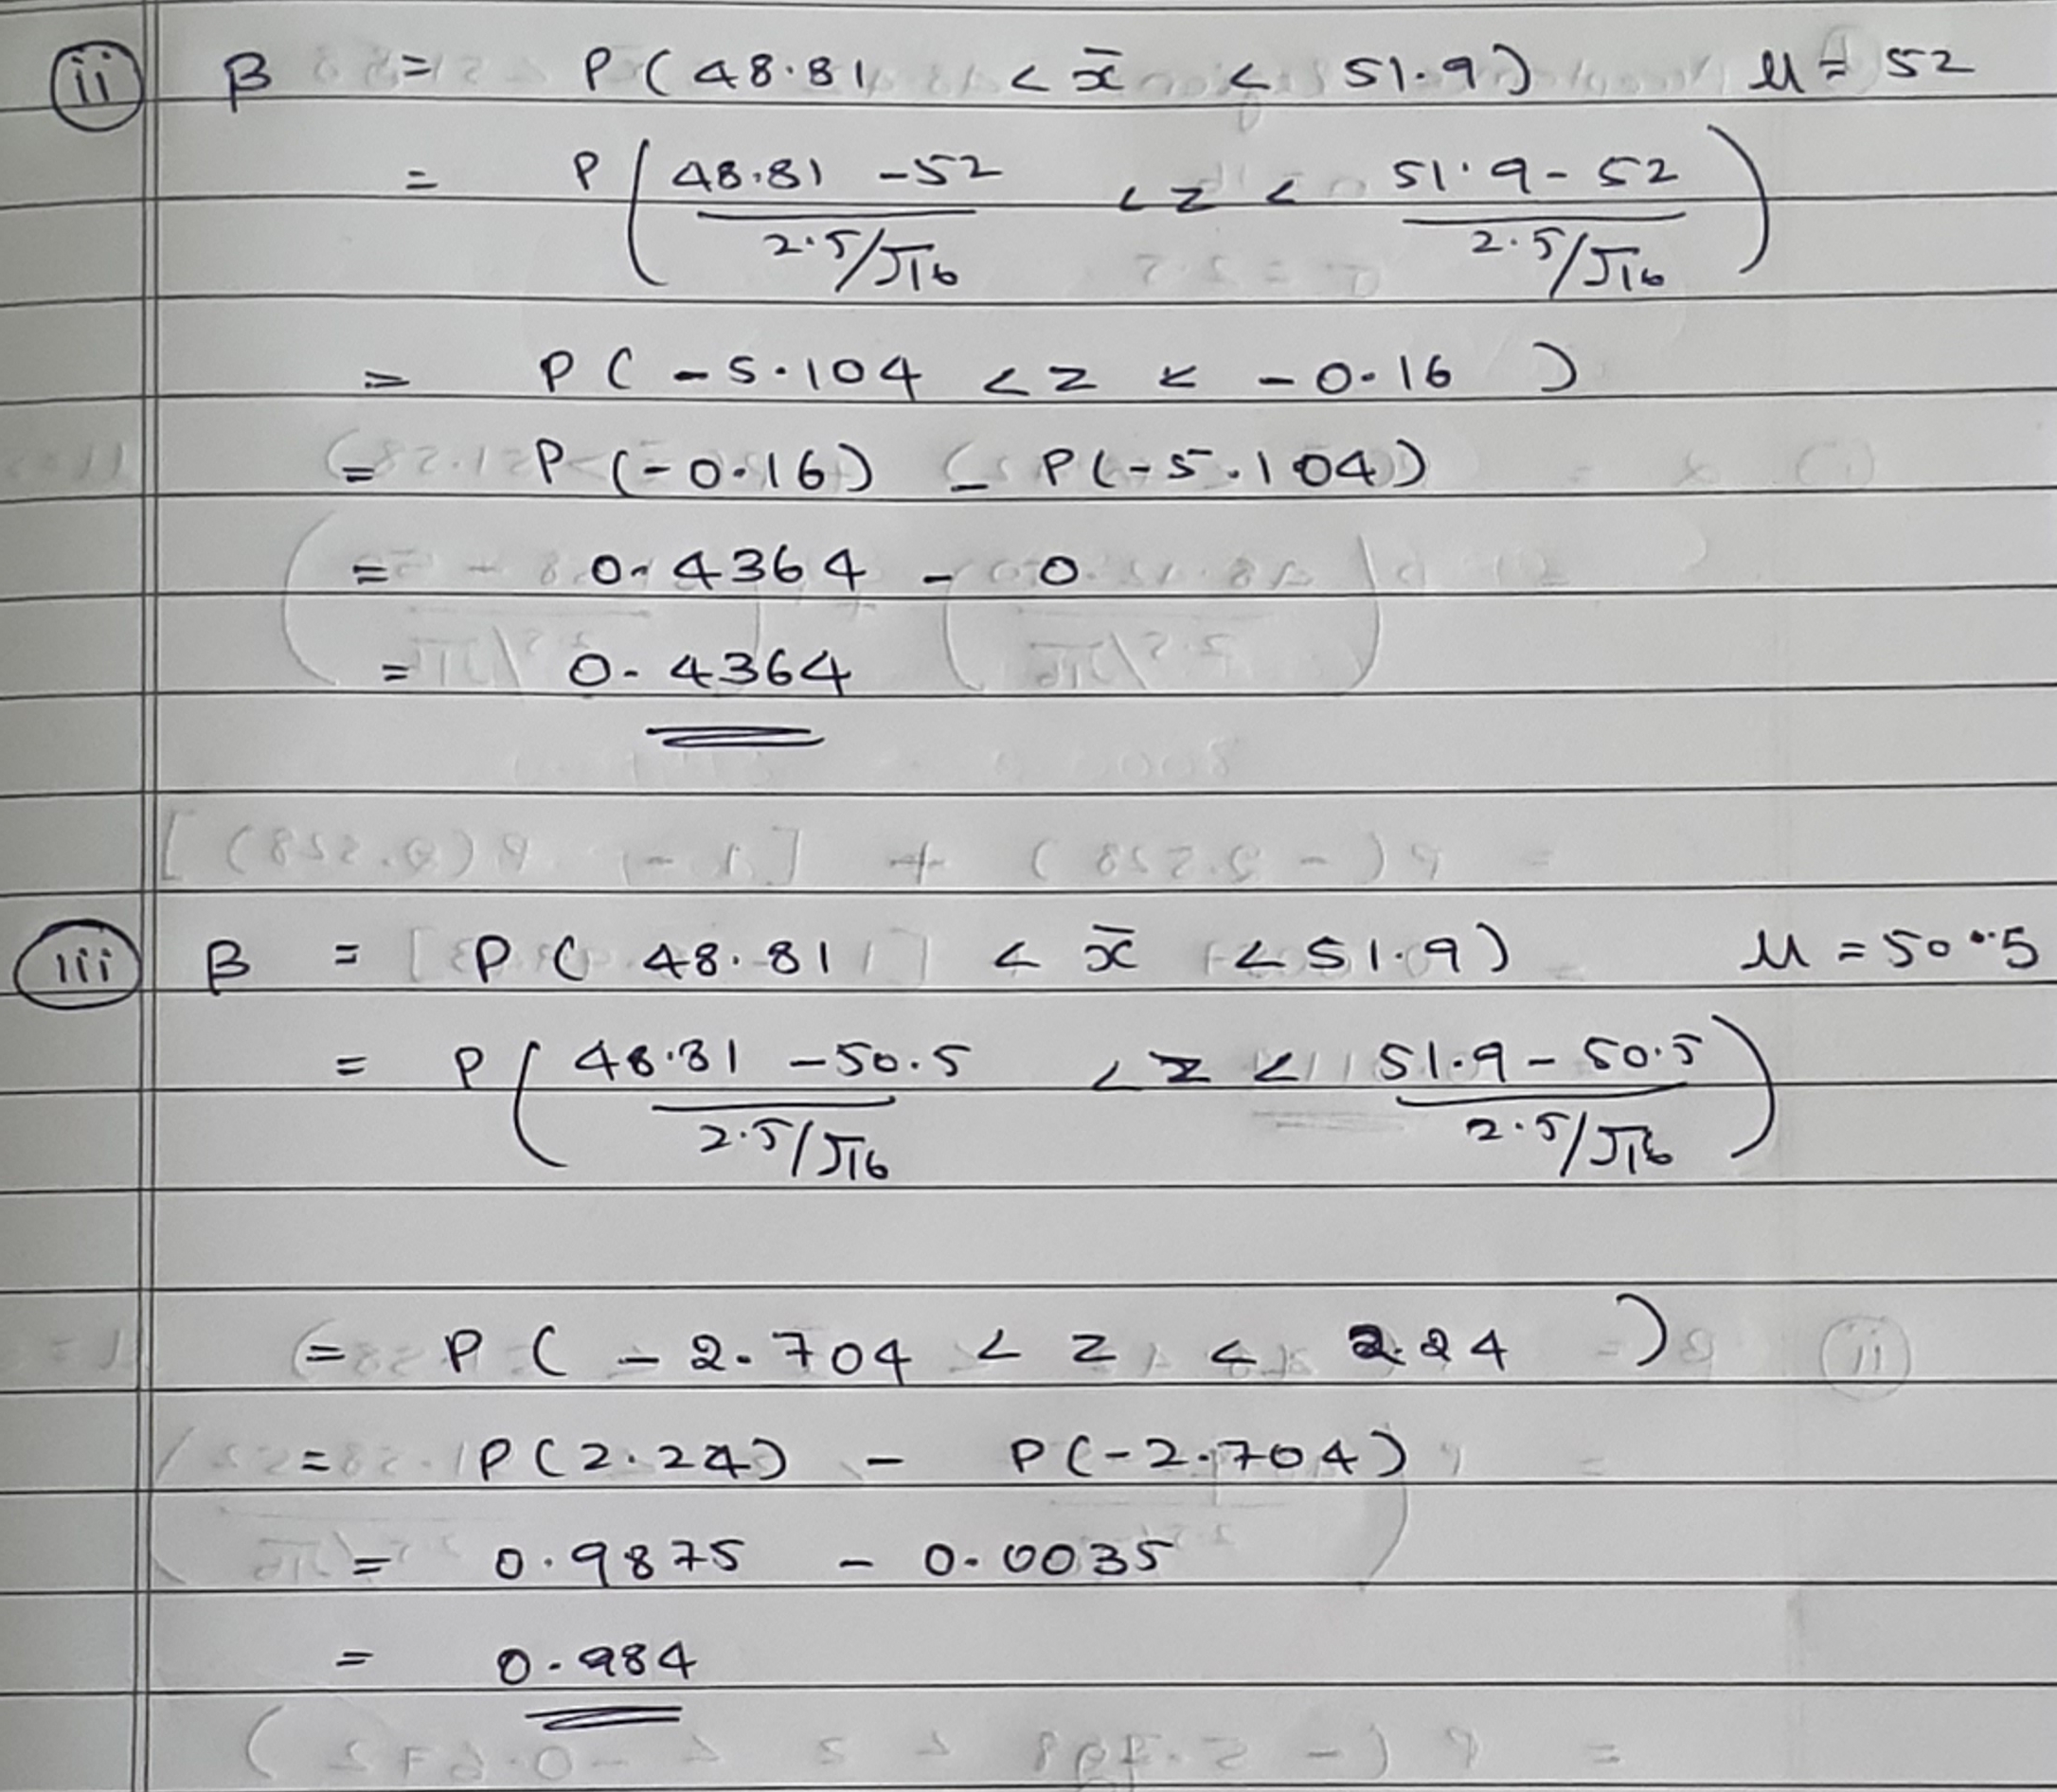 (ii) β = P ( 48.81 < x̄ < 51.9 ) μ = 52
= P ( (48.81 - 52)/(2.5/√16) < z < (51.9 - 52)/(2.5/√16) )
= P ( -5.104 < z < -0.16 )
= P (-0.16) - P(-5.104)
= 0.4364 - 0
= 0.4364
(iii) β = P ( 48.81 < x̄ < 51.9 ) μ = 50.5
= P ( (48.81 - 50.5)/(2.5/√16) < z < (51.9 - 50.5)/(2.5/√16) )
= P ( -2.704 < z < 2.24 )
= P(2.24) - P(-2.704)
= 0.9875 - 0.0035
= 0.984